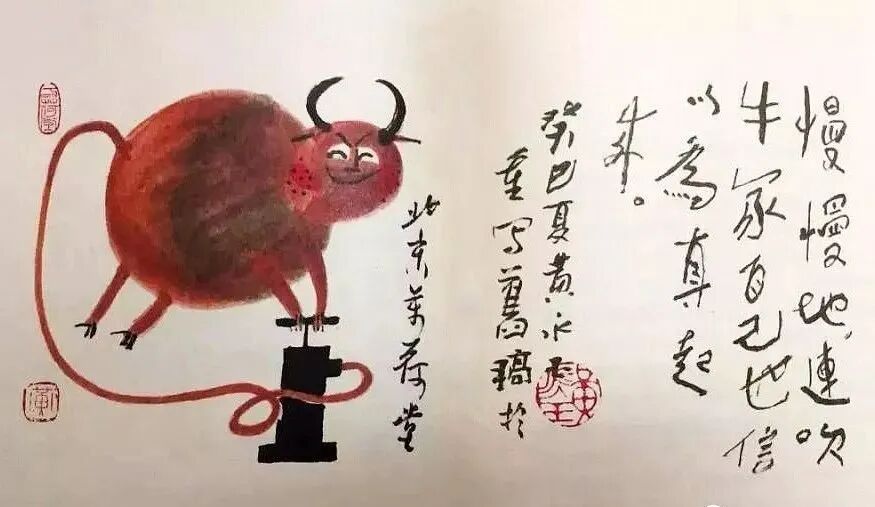 慢慢地，連吹
牛家自己也信
以為真起
来。
癸巳夏黄永玉
重寫舊稿於
北京萬荷堂